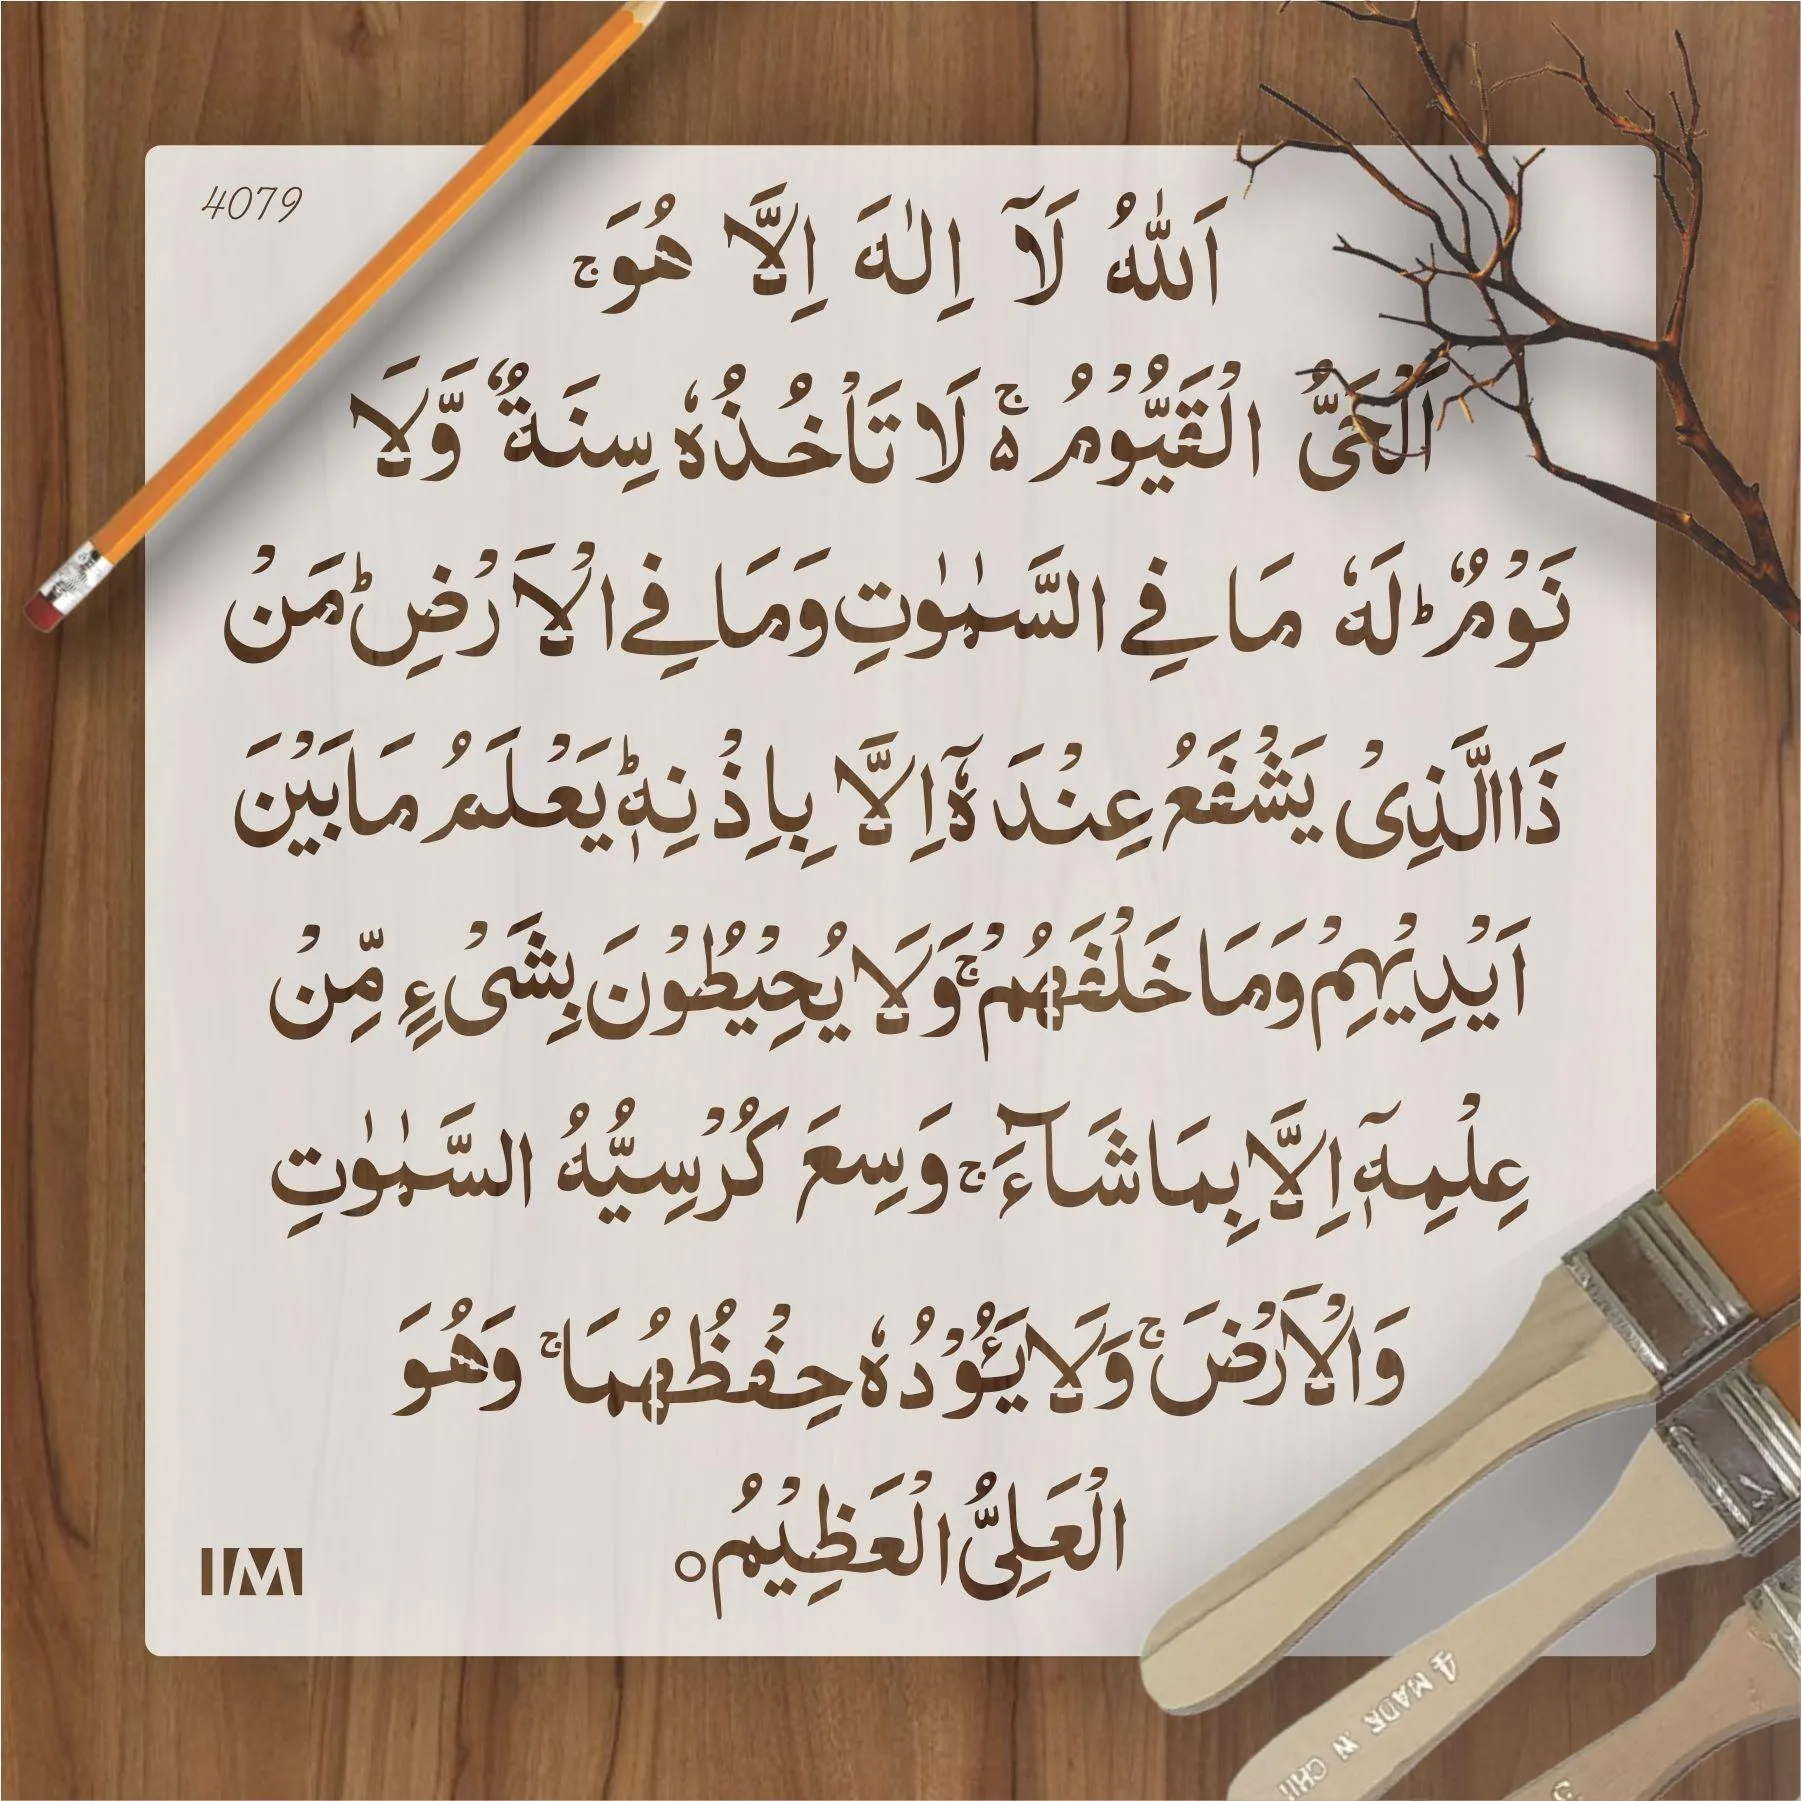 4079
اَللّٰهُ لَاۤ اِلٰهَ اِلَّا هُوَ ۚ
اَلْحَیُّ الْقَیُّوْمُ ۬ۚ ە لَا تَاْخُذُهٗ سِنَةٌ وَّلَا
نَوْمٌ ؕ لَهٗ مَا فِی السَّمٰوٰتِ وَمَا فِی الْاَرْضِ ؕ مَنْ
ذَا الَّذِیْ یَشْفَعُ عِنْدَهٗۤ اِلَّا بِاِذْنِهٖ ؕ یَعْلَمُ مَا بَیْنَ
اَیْدِیْهِمْ وَمَا خَلْفَهُمْ ۚ وَلَا یُحِیْطُوْنَ بِشَیْءٍ مِّنْ
عِلْمِهٖۤ اِلَّا بِمَا شَآءَ ۚ وَسِعَ كُرْسِیُّهُ السَّمٰوٰتِ
وَالْاَرْضَ ۚ وَلَا یَـُٔوْدُهٗ حِفْظُهُمَا ۚ وَهُوَ
الْعَلِیُّ الْعَظِیْمُ ○
IM
4 MADE IN CHI
3